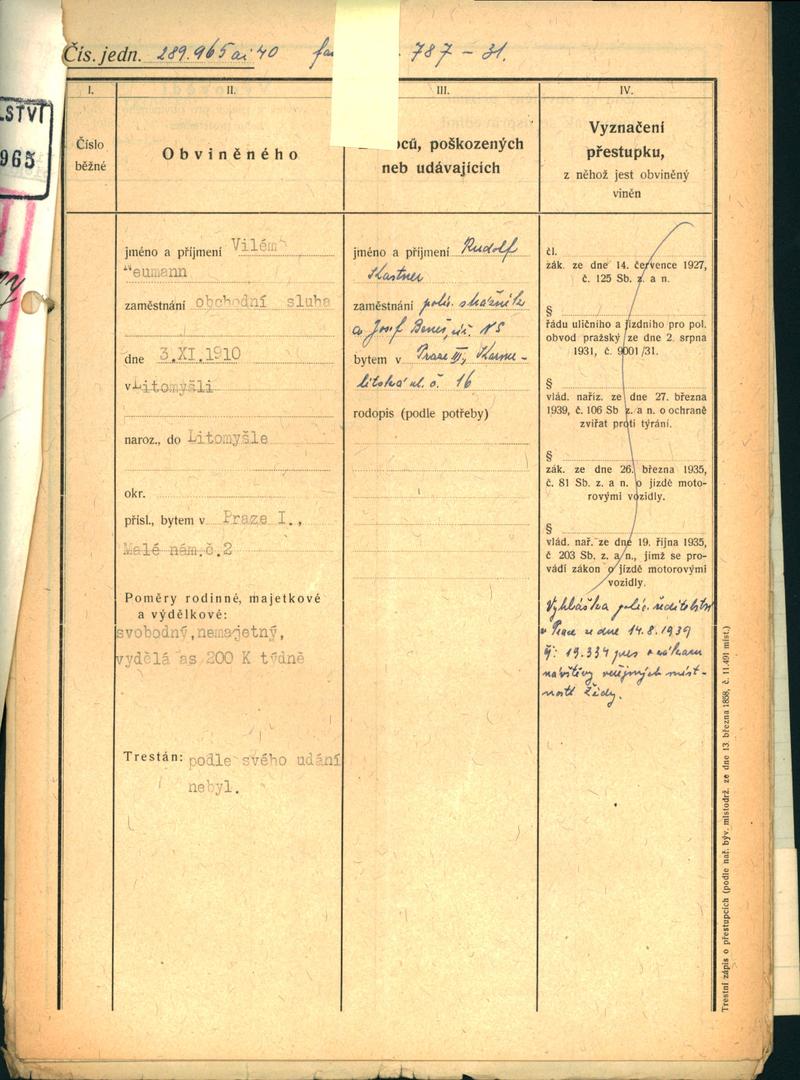 LSTVÍ
965
Čís. jedn. 289.965 ai 40 787 – 31.
I.
II.
III.
IV.
Číslo
běžné
Obviněného
poškozených
neb udávajících
Vyznačení
přestupku,
z něhož jest obviněný
viněn
jméno a příjmení Vilém
Neumann
zaměstnání obchodní sluha
dne 3.XI.1910
v Litomyšli
naroz., do Litomyšle
okr.
přísl., bytem v Praze I.,
Malé nám.č.2
Poměry rodinné, majetkové
a výdělkové:
svobodný,nemajetný,
vydělá as 200 K týdně
Trestán: podle svého udání
nebyl.
jméno a příjmení Rudolf
Kastner
zaměstnání polic. strážník
a Josef Beneš, NS
bytem v Praze III, Karme-
litská ul. č. 16
rodopis (podle potřeby)
čl.
zák. ze dne 14. července 1927,
č. 125 Sb. z. a n.
§
řádu uličního a jízdního pro pol.
obvod pražský ze dne 2. srpna
1931, č. 9001/31.
§
vlád. naříz. ze dne 27. března
1939, č. 106 Sb z. a n. o ochraně
zvířat proti týrání.
§
zák. ze dne 26. března 1935,
č. 81 Sb. z. a n. o jízdě moto-
rovými vozidly.
§
vlád. nař. ze dne 19. října 1935,
č 203 Sb. z. a n., jímž se pro-
vádí zákon o jízdě motorovými
vozidly.
Vyhláška polic. ředitelství
v Praze ze dne 14.8.1939
čj: 19.334 pres o zákazu
návštěvy veřejných míst-
ností Židy.
Trestní zápis o přestupcích (podle nař. býv. místodrž. ze dne 13. března 1858, č. 11.491 míst.)